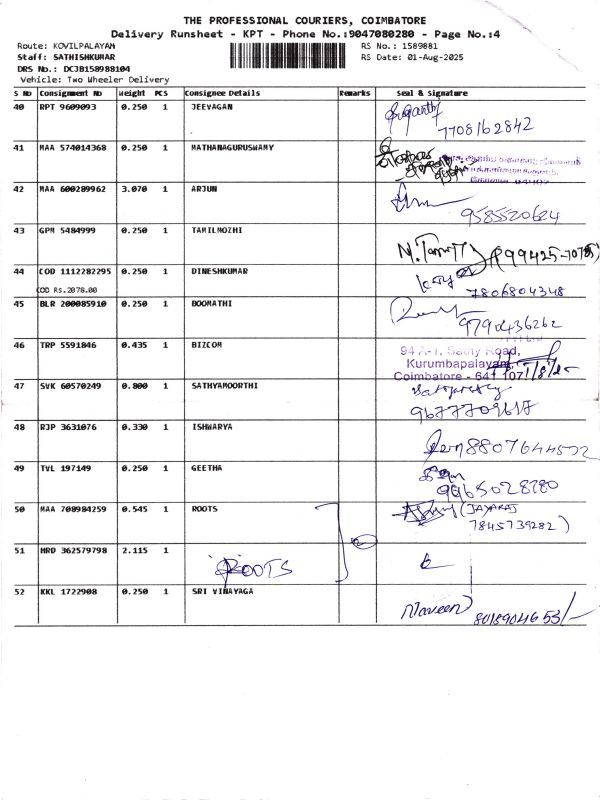 THE PROFESSIONAL COURIERS, COIMBATORE
Delivery Runsheet - KPT - Phone No.:9047080280 - Page No.:4
Route: KOVILPALAYAM
RS No.: 1589881
Staff: SATHISHKUMAR
RS Date: 01-Aug-2025
DRS No.: DCJB158988104
Vehicle: Two Wheeler Delivery
S No Consignment No Weight PCS Consignee Details Remarks Seal & Signature
40 RPT 9609093 0.250 1 JEEVAGAN
7708162842
41 MAA 574014368 0.250 1 MATHANAGURUSWAMY
42 MAA 600289962 3.070 1 ARJUN
9585520624
43 GPM 5484999 0.250 1 TAMILMOZHI
(99425-70785)
44 COD 1112282295 0.250 1 DINESHKUMAR
COD Rs.2078.00
7806804348
45 BLR 200085910 0.250 1 BOOMATHI
9790436262
46 TRP 5591846 0.435 1 BIZCOM
94 A-1, Road,
Kurumbapalayam,
Coimbatore - 641 107 1/8/25
47 SVK 60570249 0.800 1 SATHYAMOORTHI
9677709617
48 RJP 3631076 0.330 1 ISHWARYA
8807644572
49 TVL 197149 0.250 1 GEETHA
9965028780
50 MAA 708984259 0.545 1 ROOTS
(JAYARAJ
7845739282)
51 HRD 362579798 2.115 1
ROOTS
52 KKL 1722908 0.250 1 SRI VINAYAGA
Naveen
8018904653/-